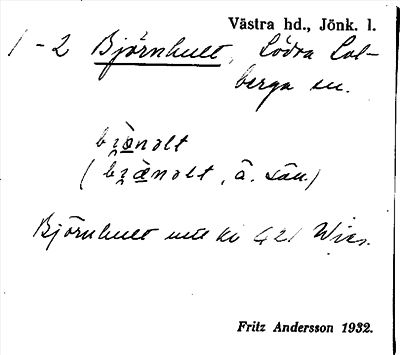 Västra hd., Jönk. l.
1-2 Björnhult, Södra Sol-
berga sn.
bjænolt
(bjænolt, ä. sön.)
Björnhult mtl ki 421 Wies.
Fritz Andersson 1932.